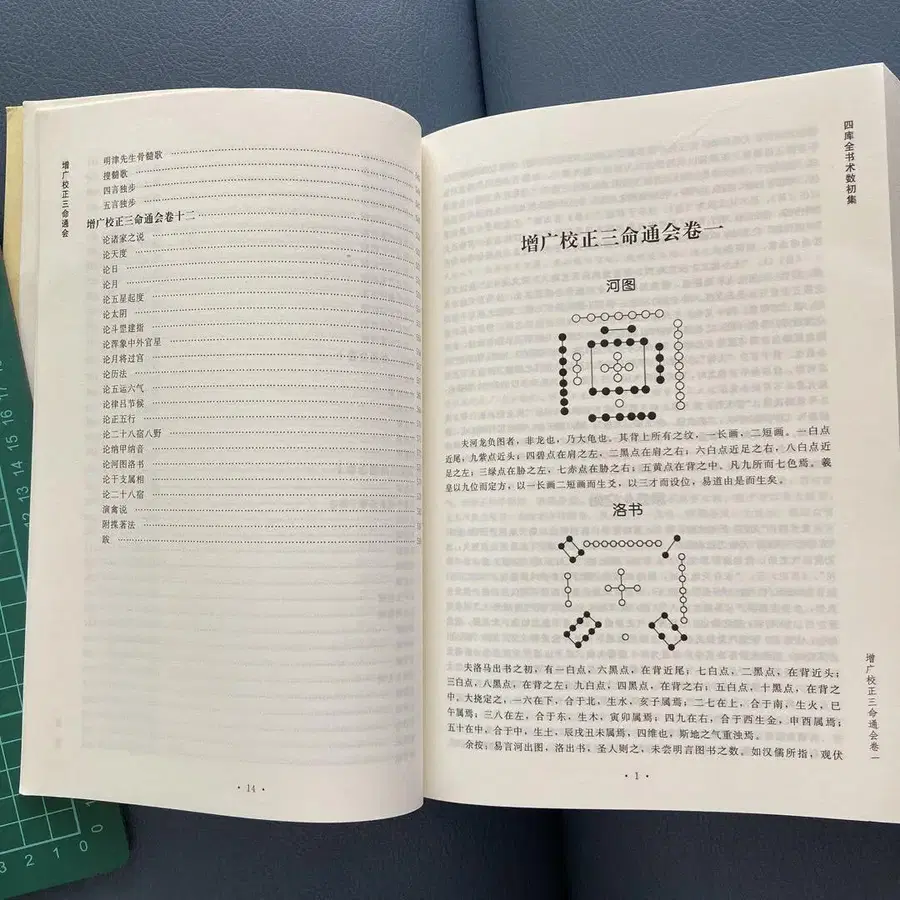 增广校正三命通会
明津先生骨髓歌
搜髓歌
四言独步
五言独步
增广校正三命通会卷十二
论诸家之说
论天度
论日
论月
论五星起度
论太阴
论斗罡建指
论浑象中外官星
论月将过宫
论历法
论五运六气
论律吕节候
论正五行
论二十八宿八野
论纳甲纳音
论河图洛书
论干支属相
论二十八宿
演禽说
附揲蓍法
跋
· 14 ·
四库全书术数初集
增广校正三命通会卷一
河图
夫河龙负图者，非龙也，乃大龟也。其背上所有之纹，一长画，二短画。一白点
近尾，九紫点近头；四碧点在肩之左，二黑点在肩之右；六白点近足之右，八白点近
足之左；三绿点在胁之左，七赤点在胁之右；五黄点在背之中。凡九所而七色焉。羲
皇以九位而定方，以一长画二短画而生爻，以三才而设位，易道由是而生矣。
洛书
夫洛马出书之初，有一白点，六黑点，在背近尾；七白点，二黑点，在背近头；
三白点，八黑点，在背之左；九白点，四黑点，在背之右；五白点，十黑点，在背之
中。大挠定之，一六在下，合于北，生水，亥子属焉；二七在上，合于南，生火，巳
午属焉；三八在左，合于东，生木，寅卯属焉；四九在右，合于西生金，申酉属焉；
五十在中，合于中，生土，辰戌丑未属焉，四维也，斯地之气重浊焉。
余按：易言河出图，洛出书，圣人则之，未尝明言图书之数。如汉儒所指，观伏
增广校正三命通会卷一
· 1 ·
17
16
15
14
13
12
3 2 1 0 0